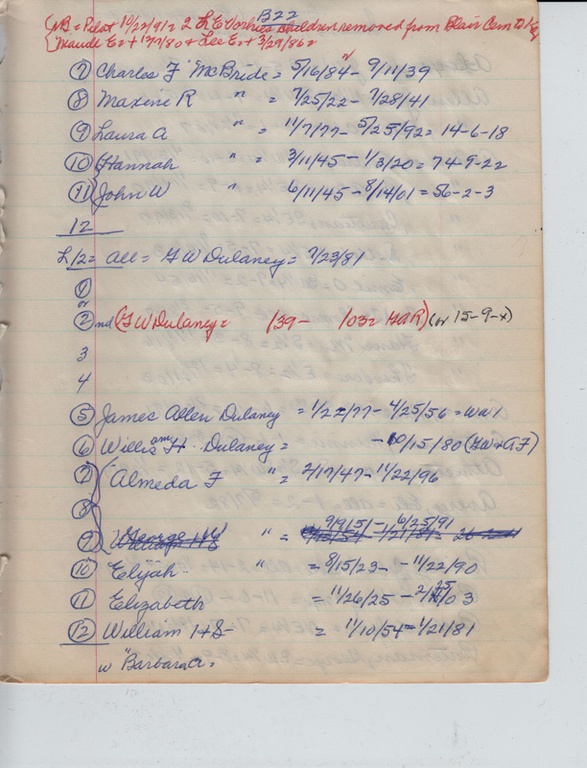 B22
NB = Pilot 10/22/91 = 2 L E Vorhies children removed from Blair Cem
Maude E = + 12/7/80 + Lee E = + 3/29/86 =
⑦ Charles F McBride = 5/16/84 - 9/11/39
⑧ Maxine R " = 7/25/22 - 7/28/41
⑨ Laura A " = 11/7/77 - 5/25/92 = 14-6-18
⑩ Hannah " = 3/11/45 - 1/3/20 = 74-9-22
⑪ John W " 6/11/45 - 8/14/01 = 56-2-3
12
L/2 = all = G W Dulaney = 7/23/81
①
or
② nd (G W Dulaney = /39 - /03 = GAR) (or 15-9-x)
3
4
⑤ James Allen Dulaney = 1/22/77 - 4/25/56 = WW1
⑥ Willis H. Dulaney = - 10/15/80 (GW + AF)
⑦ Almeda F " = 2/17/47 - 11/22/96
⑧
9/9/51 - 6/25/91
⑨ George W " =
⑩ Elijah " = 8/15/23 - 11/22/90
⑪ Elizabeth = 11/26/25 - 2/25/03
⑫ William H S = 11/10/54 - 1/21/81
w "Barbara =